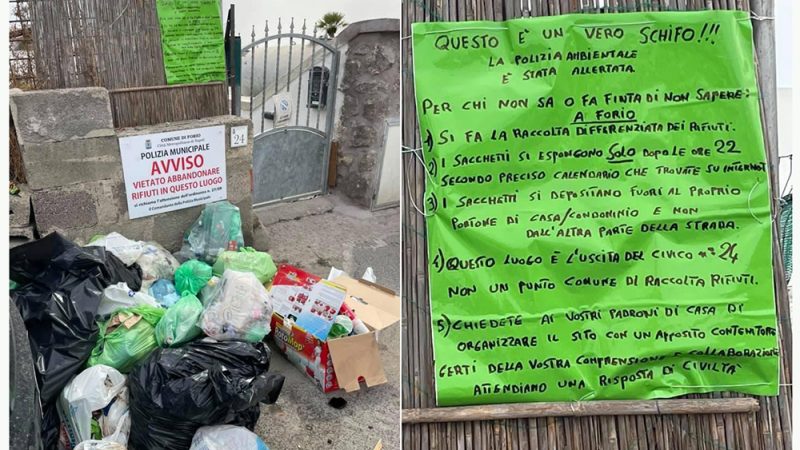 COMUNE DI FORIO
POLIZIA MUNICIPALE
AVVISO
VIETATO ABBANDONARE
RIFIUTI IN QUESTO LUOGO
24
QUESTO È UN VERO SCHIFO!!!
LA POLIZIA AMBIENTALE
È STATA ALLERTATA.
PER CHI NON SA O FA FINTA DI NON SAPERE:
A FORIO
1) SI FA LA RACCOLTA DIFFERENZIATA DEI RIFIUTI.
2) I SACCHETTI SI ESPONGONO SOLO DOPO LE ORE 22
SECONDO PRECISO CALENDARIO CHE TROVATE SU INTERNET
3) I SACCHETTI SI DEPOSITANO FUORI AL PROPRIO
PORTONE DI CASA/CONDOMINIO E NON
DALL'ALTRA PARTE DELLA STRADA.
4) QUESTO LUOGO È L'USCITA DEL CIVICO N° 24
NON UN PUNTO COMUNE DI RACCOLTA RIFIUTI.
5) CHIEDETE AI VOSTRI PADRONI DI CASA DI
ORGANIZZARE IL SITO CON UN APPOSITO CONTENITORE
CERTI DELLA VOSTRA COMPRENSIONE E COLLABORAZIONE
ATTENDIAMO UNA RISPOSTA DI CIVILTA'